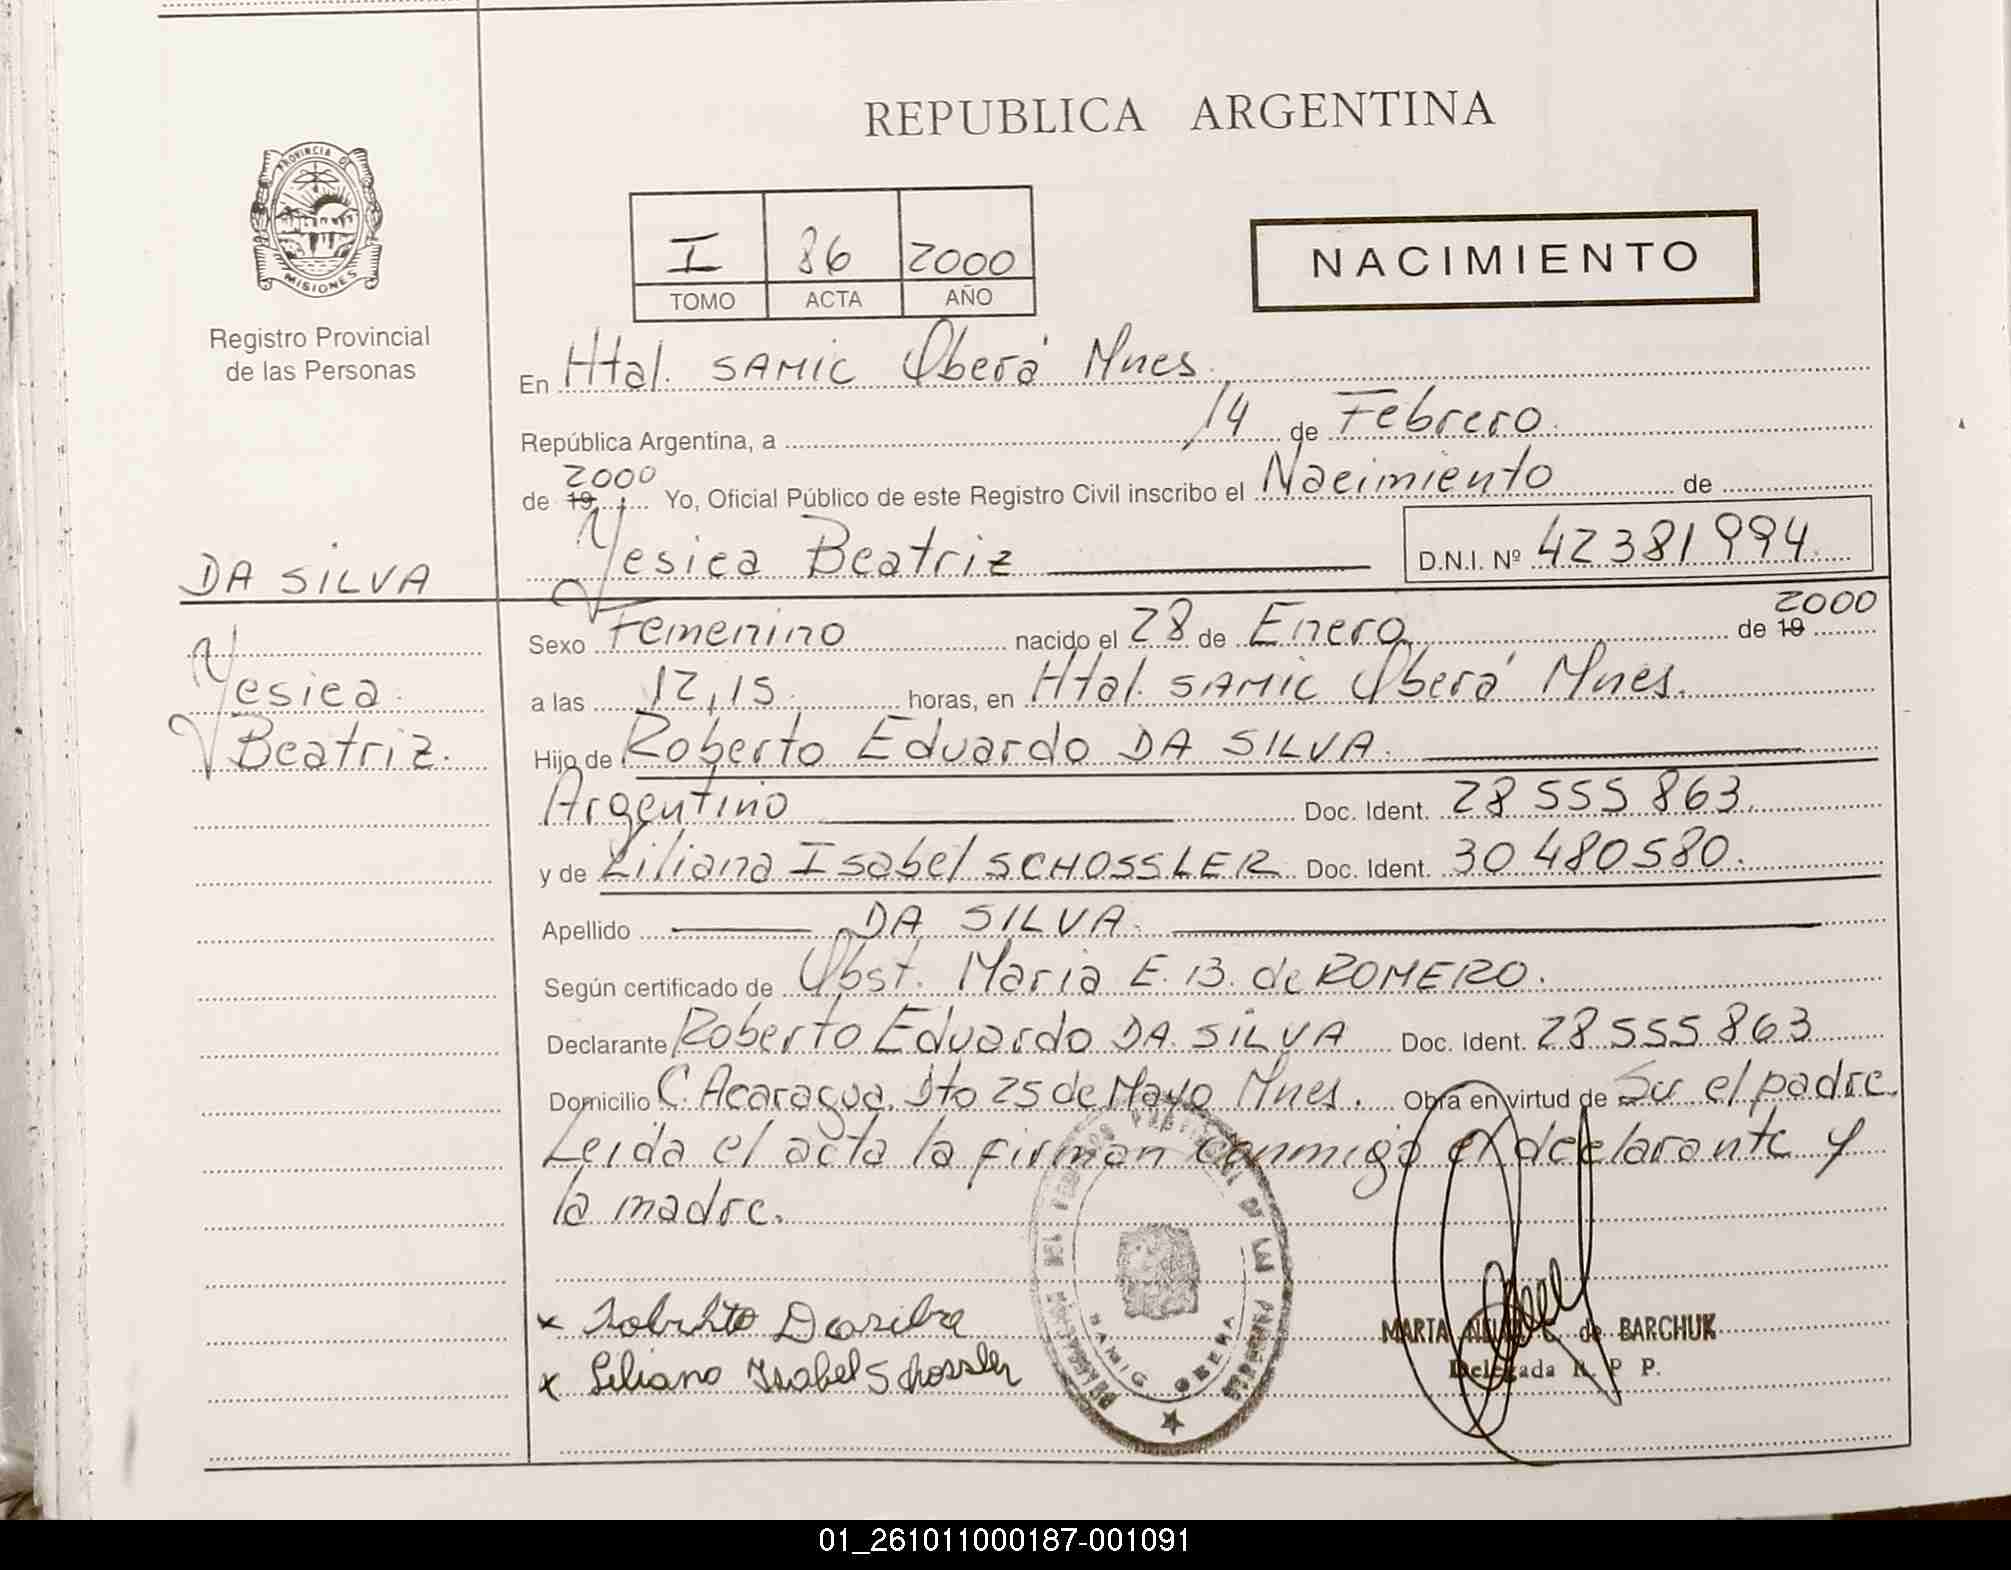 REPUBLICA ARGENTINA
PROVINCIA DE
MISIONES
Registro Provincial
de las Personas
I 86 2000
TOMO ACTA AÑO
NACIMIENTO
En Htal. SAMIC Oberá Mnes.
República Argentina, a 14 de Febrero.
2000
de 19 Yo, Oficial Público de este Registro Civil inscribo el Nacimiento de
Yesica Beatriz D.N.I. Nº 42381994
DA SILVA
Yesica
Beatriz.
2000
Sexo Femenino nacido el 28 de Enero de 19
a las 12,15 horas, en Htal. SAMIC Oberá Mnes.
Hijo de Roberto Eduardo DA SILVA.
Argentino Doc. Ident. 28 555 863.
y de Liliana Isabel SCHOSSLER Doc. Ident. 30 480580.
Apellido DA SILVA.
Según certificado de Obst. Maria E. B. de ROMERO.
Declarante Roberto Eduardo DA SILVA Doc. Ident. 28 555 863
Domicilio C. Acaragua. Dto 25 de Mayo Mnes. Obra en virtud de Su el padre.
Leida el acta la firman conmigo el declarante y
la madre.
SAMIC OBERA
DE LAS
x Roberto Dasilva
x Liliana Isabel Schossler
MARTA de BARCHUK
Delegada R. P P.
01_261011000187-001091